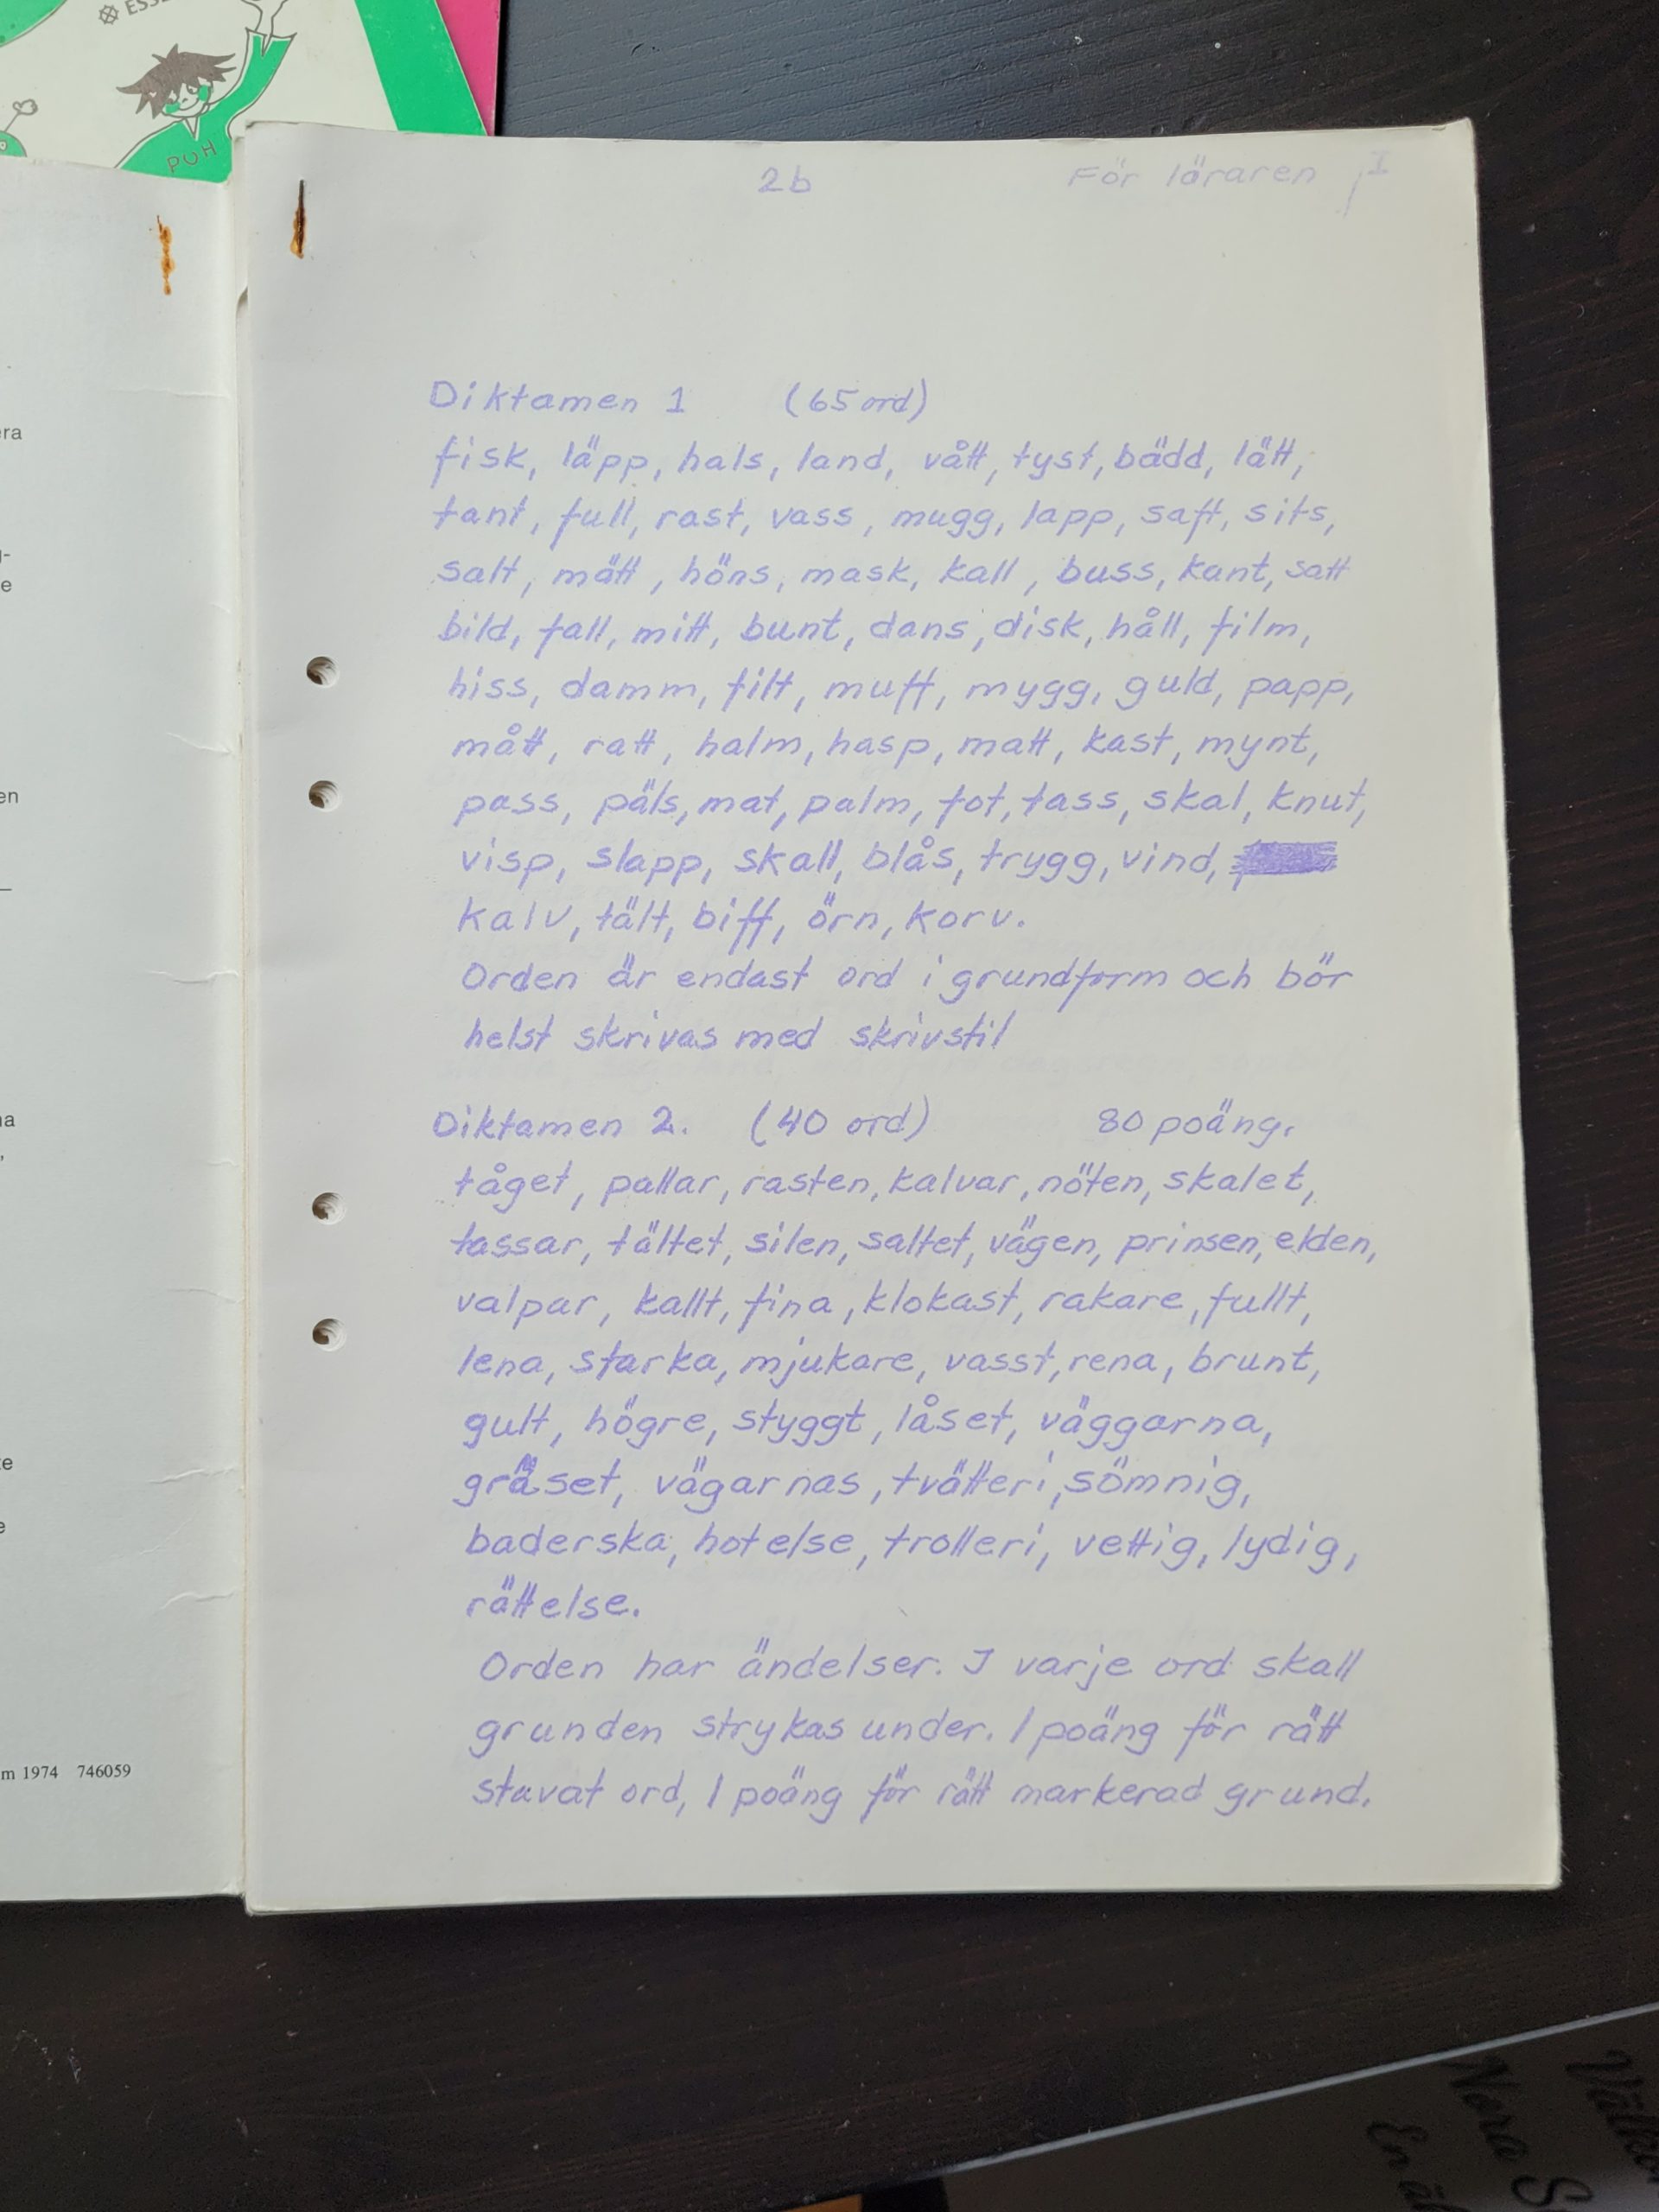 PUH
era
en
m 1974 746059
2b För läraren I
Diktamen 1 (65 ord)
fisk, läpp, hals, land, vått, tyst, bädd, lätt,
tant, full, rast, vass, mugg, lapp, saft, sits,
salt, mätt, höns, mask, kall, buss, kant, satt
bild, fall, mitt, bunt, dans, disk, håll, film,
hiss, damm, filt, muff, mygg, guld, papp,
mått, ratt, halm, hasp, matt, kast, mynt,
pass, päls, mat, palm, fot, tass, skal, knut,
visp, slapp, skall, blås, trygg, vind,
kalv, tält, biff, örn, korv.
Orden är endast ord i grundform och bör
helst skrivas med skrivstil
Diktamen 2. (40 ord) 80 poäng.
tåget, pallar, rasten, kalvar, nöten, skalet,
tassar, tältet, silen, saltet, vägen, prinsen, elden,
valpar, kallt, fina, klokast, rakare, fullt,
lena, starka, mjukare, vasst, rena, brunt,
gult, högre, styggt, låset, väggarna,
gräset, vägarnas, tvätteri, sömnig,
baderska, hotelse, trolleri, vettig, lydig,
rättelse.
Orden har ändelser. I varje ord skall
grunden strykas under. 1 poäng för rätt
stavat ord, 1 poäng för rätt markerad grund.